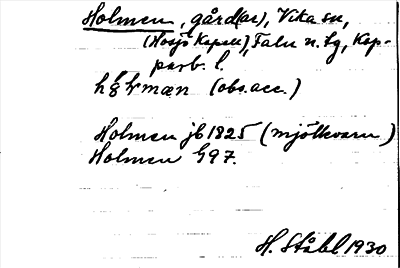 Holmen, gård(ar), Vika sn,
(Hosjö Kapell), Falu n. tg, Kop-
parb. l.
(obs. acc.)
Holmen jb 1825 (mjölkvarn)
Holmen G97.
H. Ståhl 1930